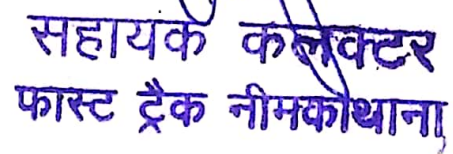 सहायक कलेक्टर
फास्ट ट्रैक नीमकाथाना